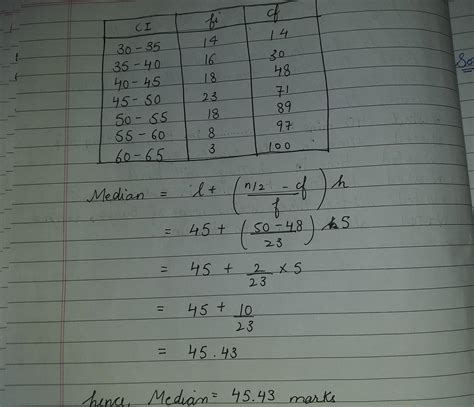 CI fi cf
30-35 14 14
35-40 16 30
40-45 18 48
45-50 23 71
50-55 18 89
55-60 8 97
60-65 3 100
Median = l + (n/2 - cf / f) h
= 45 + (50-48 / 23) 5
= 45 + 2/23 × 5
= 45 + 10/23
= 45.43
hence, Median = 45.43 marks